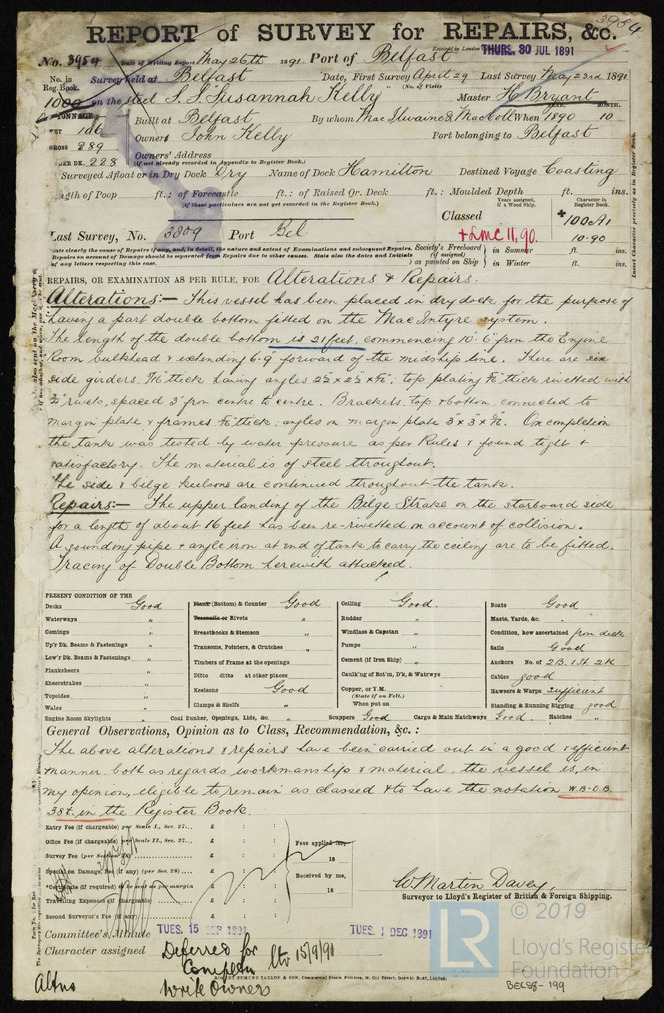 3954
REPORT of SURVEY for REPAIRS, &c.
Received in London THURS. 30 JUL 1891
No. 3954 Date of Writing Report May 26th 1891 Port of Belfast
No. in Reg. Book. Survey held at Belfast Date, First Survey April 29 Last Survey May 23rd 1891
(No. of Visits)
1000 on the steel S.S. Susannah Kelly Master H. Bryant
TONNAGE Built at Belfast By whom MacIlwaine & MacColl When 1890 MONTH. 10
GROSS 289 Owner John Kelly Port belonging to Belfast
Owners' Address
(if not already recorded in Appendix to Register Book.)
UNDER DK. 228
Surveyed Afloat or in Dry Dock Dry Name of Dock Hamilton Destined Voyage Coasting
Length of Poop ft.; of Forecastle ft.: of Raised Qr. Deck ft.: Moulded Depth ft. ins.
(If these particulars are not yet recorded in the Register Book.)
Years assigned, if a Wood Ship.
Character in Register Book.
Classed +100A1
Last Survey, No. 3809 Port Bel +LMC 11,90. 10.90
Society's Freeboard (if assigned) as painted on Ship in Summer ft. ins.
in Winter ft. ins.
Insert Character precisely as in Register Book.
State clearly the cause of Repairs if any, and, in detail, the nature and extent of Examinations and subsequent Repairs.
Repairs on account of Damage should be separated from Repairs due to other causes. State also the dates and Initials
of any letters respecting this case.
REPAIRS, OR EXAMINATION AS PER RULE, FOR Alterations & Repairs.
Alterations:— This vessel has been placed in dry dock for the purpose of
having a part double bottom fitted on the MacIntyre system.
The length of the double bottom is 21 feet, commencing 10'.6" from the Engine
Room bulkhead & extending 6.9 forward of the midship line. There are six
side girders, thick having angles top plating thick rivetted with
rivets, spaced 3" from centre to centre. Brackets, top & bottom connected to
margin plate & frames thick; angles on margin plate 3" x 3" x On completion
the tank was tested by water pressure as per Rules & found tight &
satisfactory. The material is of steel throughout.
The side & bilge keelsons are continued throughout the tank.
Repairs:— The upper landing of the Bilge Strake on the starboard side
for a length of about 16 feet has been re-rivetted on account of collision.
A sounding pipe & angle iron at end of tank to carry the ceiling are to be fitted.
Tracing of Double Bottom herewith attached.
PRESENT CONDITION OF THE
Decks Good
Waterways "
Comings "
Up'r Dk. Beams & Fastenings "
Low'r Dk. Beams & Fastenings "
Planksheers "
Sheerstrakes "
Topsides "
Wales "
Engine Room Skylights "
Plank (Bottom) & Counter Good
Treenails or Rivets "
Breasthooks & Stemson "
Transoms, Pointers, & Crutches "
Timbers of Frame at the openings
Ditto ditto at other places
Keelsons Good
Clamps & Shelfs "
Coal Bunker, Openings, Lids, &c. "
Ceiling Good.
Rudder "
Windlass & Capstan "
Pumps "
Cement (if Iron Ship) "
Caulk'ng of Bot'm, D'k, & Watrwys
Copper, or Y.M.
(State if on Felt.)
When put on
Scuppers Good Cargo & Main Hatchways Good. Hatches "
Boats Good
Masts, Yards, &c. "
Condition, how ascertained from deck
Sails Good
Anchors No. of 2 B. 1 St. 2 K
Cables good
Hawsers & Warps sufficient
Standing & Running Rigging good
General Observations, Opinion as to Class, Recommendation, &c. :
The above alterations & repairs have been carried out in a good & efficient
manner both as regards workmanship & material, the vessel is, in
my opinion, eligible to remain as classed & to have the notation W.B-D.B.
38t. in the Register Book.
Entry Fee (if chargeable) per Scale I., Sec. 27... £ : :
Office Fee (if chargeable) per Scale II., Sec. 27... £ : :
Survey Fee (per Section 28) £ : :
Special or Damage Fee (if any) (per Sec. 28) £ : :
Certificate (if required) to be sent as per margin £ : :
Travelling Expenses (if chargeable) £ : :
Second Surveyor's Fee (if any) £ : :
Fees applied for,
18
Received by me,
18
W. Martin Davey,
Surveyor to Lloyd's Register of British & Foreign Shipping.
Committee's Minute TUES. 15 SEP 1891 TUES. 1 DEC 1891
Character assigned Deferred for
Compln ltr 15/9/91
Write Owners
Altns
LR
© 2019
Lloyd's Register
Foundation
BEL58-199